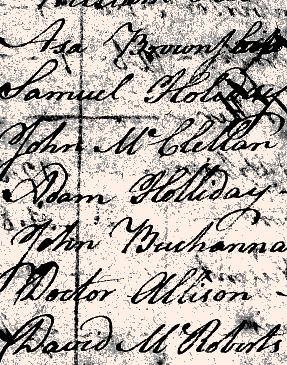 Asa Brown
Samuel Holliday
John McClellan
Adam Holliday
John Buchanna
Doctor Allison
David McRoberts